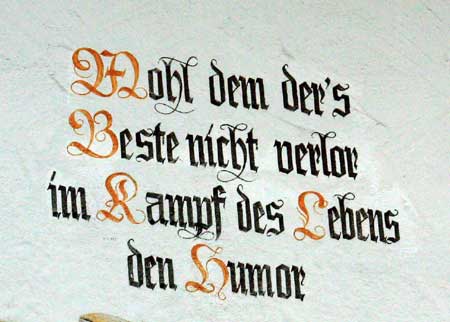 Wohl dem der's
Beste nicht verlor
im Kampf des Lebens
den Humor